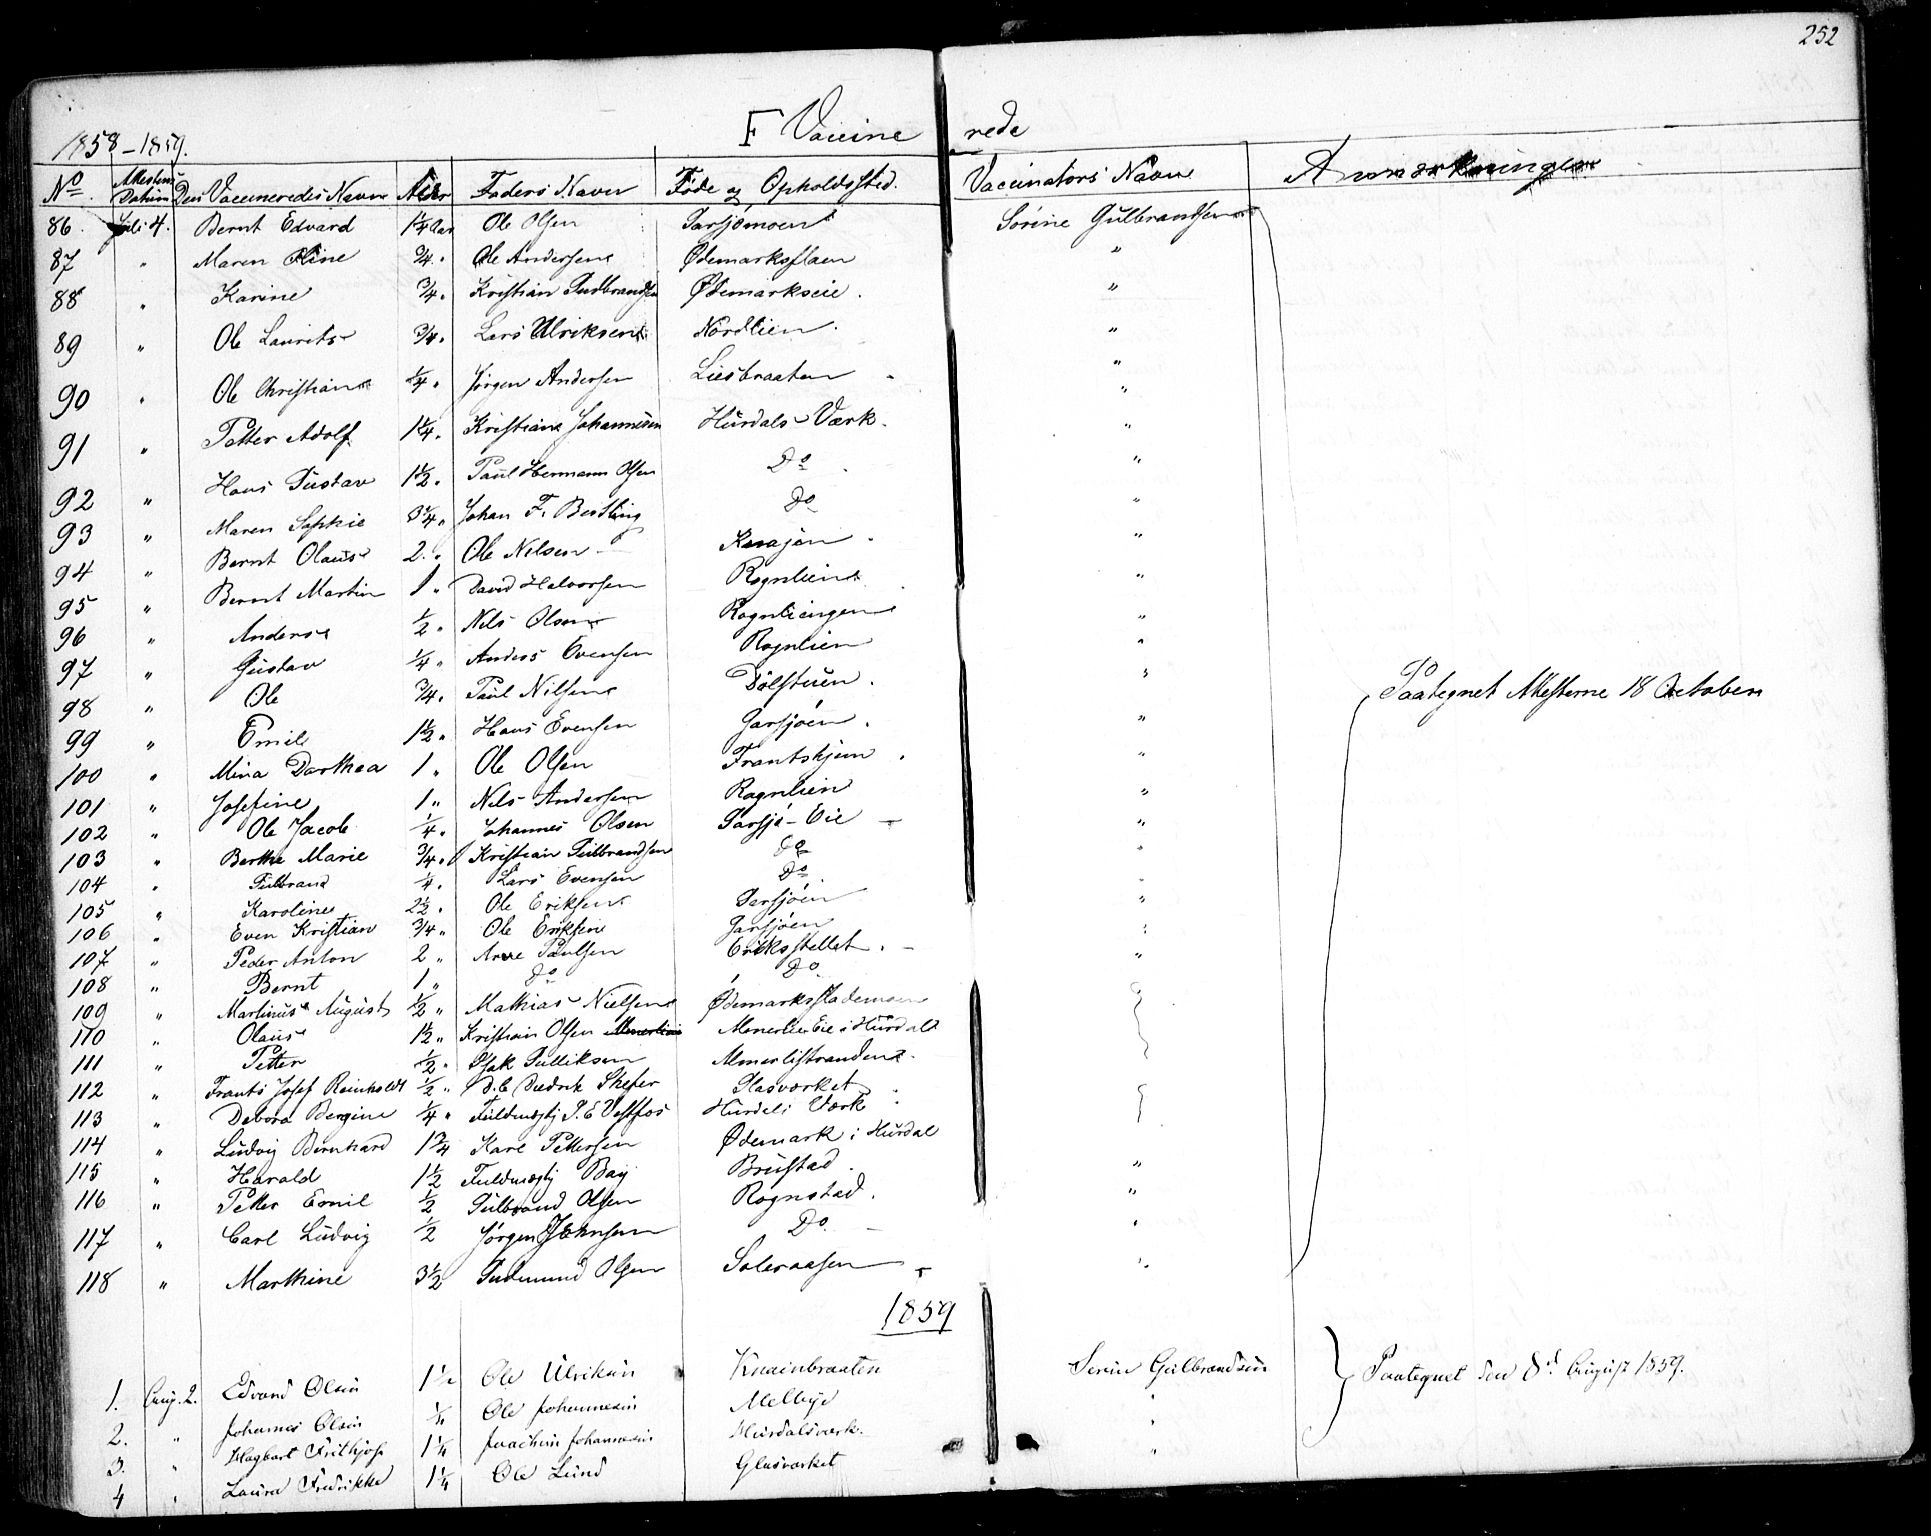 252
F Vaccine rede
1858-1859.
No Attestens Datum Den Vaccineredes Navn Alder Faders Navn Føde og Opholdssted. Vaccinators Navn Anmærkninger
86. Juli 4. Bernt Edvard 1 1/4 Aar Ole Olsen Garsjømoen Sørine Gulbrandsen
87 " Maren Oline 3/4 " Ole Andersen Ødemarksflaen "
88 " Karine 3/4 " Kristian Gudbrandsen Ødemarkseie. "
89 " Ole Laurits 3/4 " Lars Ulriksen Nordlien. "
90 " Ole Christian 1/4 " Jørgen Andersen Liesbraaten "
91 " Petter Adolf 1 1/4 " Kristian Johannesen Hurdals Værk. "
92 " Hans Gustav 1 1/2 " Paul Hermann Olsen Do "
93 " Maren Sophie 3 3/4 " Johan F. Do "
94 " Bernt Olaus 2 " Ole Nilsen "
95 " Bernt Martin 1 " David Halvorsen Rognlien "
96 " Anders 1/2 " Nils Olsen Rognliengen "
97 " Gustav 1/4 " Anders Evensen Rognlien "
98 " Ole 3/4 " Paul Nilsen Dølstuen. " Paategnet Attesterne 18 October
99 " Emil 1 1/2 " Hans Evensen Garsjøen. "
100 " Mina Dorthea 1 " Ole Olsen Frantshjem. "
101 " Josefine 1 " Nils Andersen Rognlien "
102 " Ole Jacob 1/4 " Johannes Olsen Garsjø-Eie "
103 " Berthe Marie 3/4 " Kristian Gulbrandsen Do "
104 " Gulbrand 1/4 " Lars Evensen Do "
105 " Karoline 2 1/2 " Ole Eriksen Garsjøen "
106 " Even Kristian 3/4 " Ole Eriksen Garsjøen "
107 " Peder Anton 2 " Arne Paulsen Eriksstellet. "
108 " Bernt 1 " Do Do
109 " Martinus August 1/2 " Mathias Nielsen Ødemarksflademoen
110 " Olaus 1 1/2 " Kristian Olsen Almerlie Eie i Hurdal
111 " Petter 1/2 " Isak Gulliksen Almerlistranden.
112 " Frants Josef Reinholdt 1/2 " Diedrik Skefer Glasværket
113 " Debora Bergine 1/4 " Fuldmægtig P. E Vestfos Hurdals Værk
114 " Ludvig Bernhard 1 3/4 Karl Pettersen Ødemark i Hurdal
115 " Harald 1 1/2 Fuldmægtig Bay Brustad. "
116 " Petter Emil 1/2 Gulbrand Olsen Rognstad. "
117 " Carl Ludvig 1/2 Jørgen Johnsen Do. "
118 " Marthine 3 1/2 Gudmund Olsen Soleraasen "
1859
1. Aug. 2. Edvard Olsen 1 1/2 Ole Ulriksen Knainbraaten Serine Gulbrandsen Paategnet den 8de August 1859.
2. " Johannes Olsen 1/4 Ole Johannesen Melbye "
3. " Hagbart Frithjof 1 1/4 Joachim Johannesen Hurdalsværk. "
4 " Laura Fredrikke 1 1/4 Ole Lund Glasværket